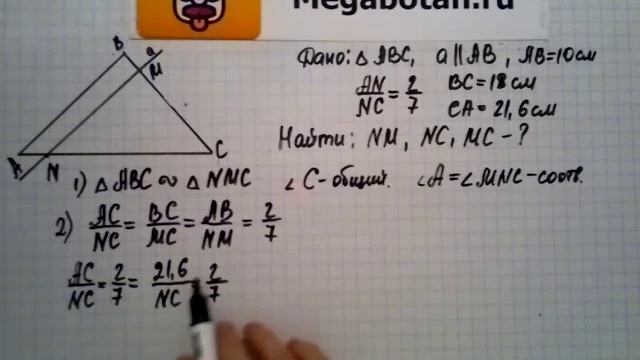 Megabotan.ru
B a
M
A N C
Дано: △ABC, a∥AB, AB=10см
AN/NC = 2/7 BC=18см
CA=21,6см
Найти: NM, NC, MC-?
1) △ABC ∾ △NMC ∠C-общий. ∠A=∠MNC-соотв.
2) AC/NC = BC/MC = AB/NM = 2/7
AC/NC = 2/7 = 21,6/NC 2/7